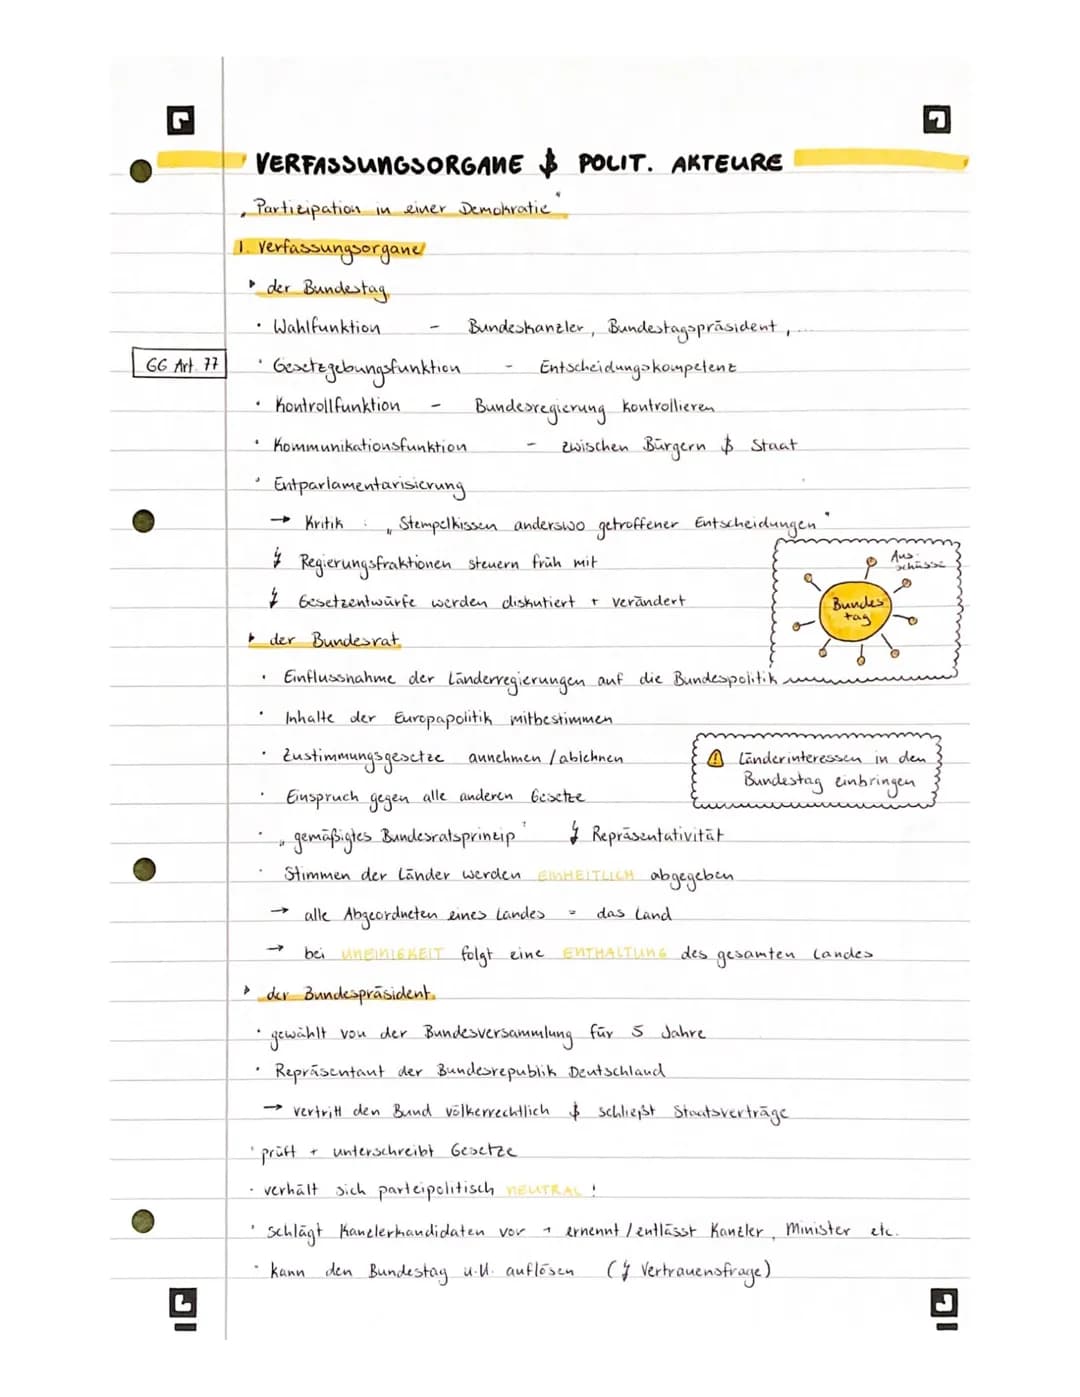 VERFASSUNGSORGANE & POLIT. AKTEURE
„Partizipation in einer Demokratie“
1. Verfassungsorgane
▸ der Bundestag
• Wahlfunktion - Bundeskanzler, Bundestagspräsident, ...
GG Art. 77
• Gesetzgebungsfunktion - Entscheidungskompetenz
• Kontrollfunktion - Bundesregierung kontrollieren
• Kommunikationsfunktion - zwischen Bürgern & Staat
• Entparlamentarisierung
→ Kritik: „Stempelkissen anderswo getroffener Entscheidungen“
↯ Regierungsfraktionen steuern früh mit
↯ Gesetzentwürfe werden diskutiert + verändert
Aus-
schüsse
Bundes
tag
▸ der Bundesrat
• Einflussnahme der Länderregierungen auf die Bundespolitik
• Inhalte der Europapolitik mitbestimmen
• Zustimmungsgesetze annehmen / ablehnen
• Einspruch gegen alle anderen Gesetze
⚠ Länderinteressen in den
Bundestag einbringen
• „gemäßigtes Bundesratsprinzip“ ↯ Repräsentativität
• Stimmen der Länder werden EINHEITLICH abgegeben
→ alle Abgeordneten eines Landes = das Land
→ bei UNEINIGKEIT folgt eine ENTHALTUNG des gesamten Landes
▸ der Bundespräsident
• gewählt von der Bundesversammlung für 5 Jahre
• Repräsentant der Bundesrepublik Deutschland
→ vertritt den Bund völkerrechtlich & schließt Staatsverträge
• prüft + unterschreibt Gesetze
• verhält sich parteipolitisch NEUTRAL!
• schlägt Kanzlerkandidaten vor + ernennt / entlässt Kanzler, Minister etc.
• kann den Bundestag u.U. auflösen (↯ Vertrauensfrage)